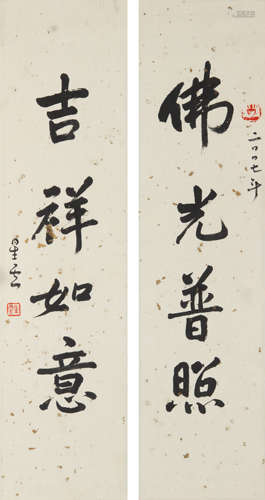 佛光普照
二〇〇七年
吉祥如意
星云